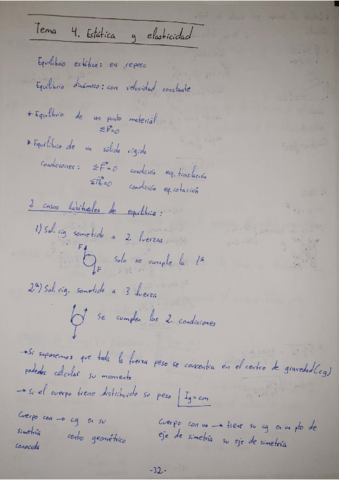 Tema 4. Estática y elasticidad
Equilibrio estático: en reposo
Equilibrio dinámico: con velocidad constante
* Equilibrio de un punto material
ΣF=0
* Equilibrio de un sólido rígido
condiciones: ΣF=0 condición eq. traslación
ΣM=0 condición eq. rotación
2 casos habituales de equilibrio:
1) Sol. rig. sometido a 2 fuerzas
F
F
solo se cumple la 1ª
2º) Sol. rig. sometido a 3 fuerza
se cumplen las 2 condiciones
→ Si suponemos que toda la fuerza peso se concentra en el centro de gravedad (cg)
podemos calcular su momento
→ Si el cuerpo tiene distribuido su peso cg=cm
Cuerpo con → cg en su
simetría centro geométrico
conocida
Cuerpo con un → tiene su cg en un pto de
eje de simetría su eje de simetría
-12-